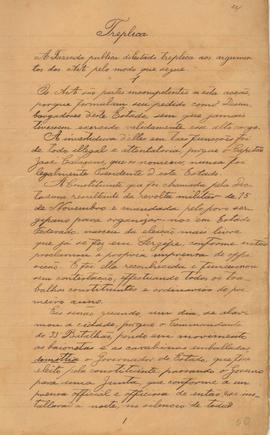 Treplica
A Fazenda publica do Estado treplica aos argumen
tos dos AA pelo modo que segue
1
Os AA são partes incompetentes n'esta acção,
porque formulam seu pedido como Desem
bargadores deste Estado sem que jamais
tivessem exercido validamente esse alto cargo.
A investidura d'elles em taes funcções foi
de todo illegal e attentatoria, porque o Capitão
José Calazans, que os nomeou, nunca foi
legalmente Presidente d'este Estado.
A Constituinte que foi chamada pela dic
tadura resultante da revolta militar de 15
de Novembro e mandada pelo povo ser
gipano para organizar-nos em Estado
Federado nasceu da eleição mais livre
que já se fez em Sergipe, conforme então
proclamou a propria imprensa de oppo
sição. E foi ella reconhecida e funccionou
sem contestação, effectuando todos os tra
balhos constituintes e ordinarios do pri
meiro anno.
Eis senão quando, um dia, se alar
mou a cidade, porque o Commandante
do 33 Batalhão, pondo em movimento
as baionetas e as carabinas embaladas
o Governador do Estado, que fora
eleito pela constituinte, passando o Governo
para uma Junta, que conforme a im
prensa official e officiosa de então nos ins
tallava a noite, no silencio de todas
1